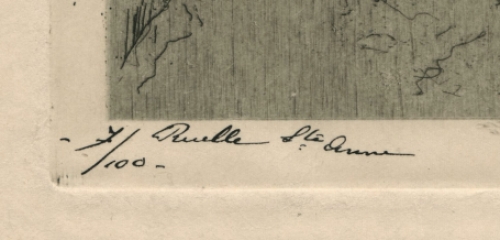 - 7/100 - Ruelle Ste Anne